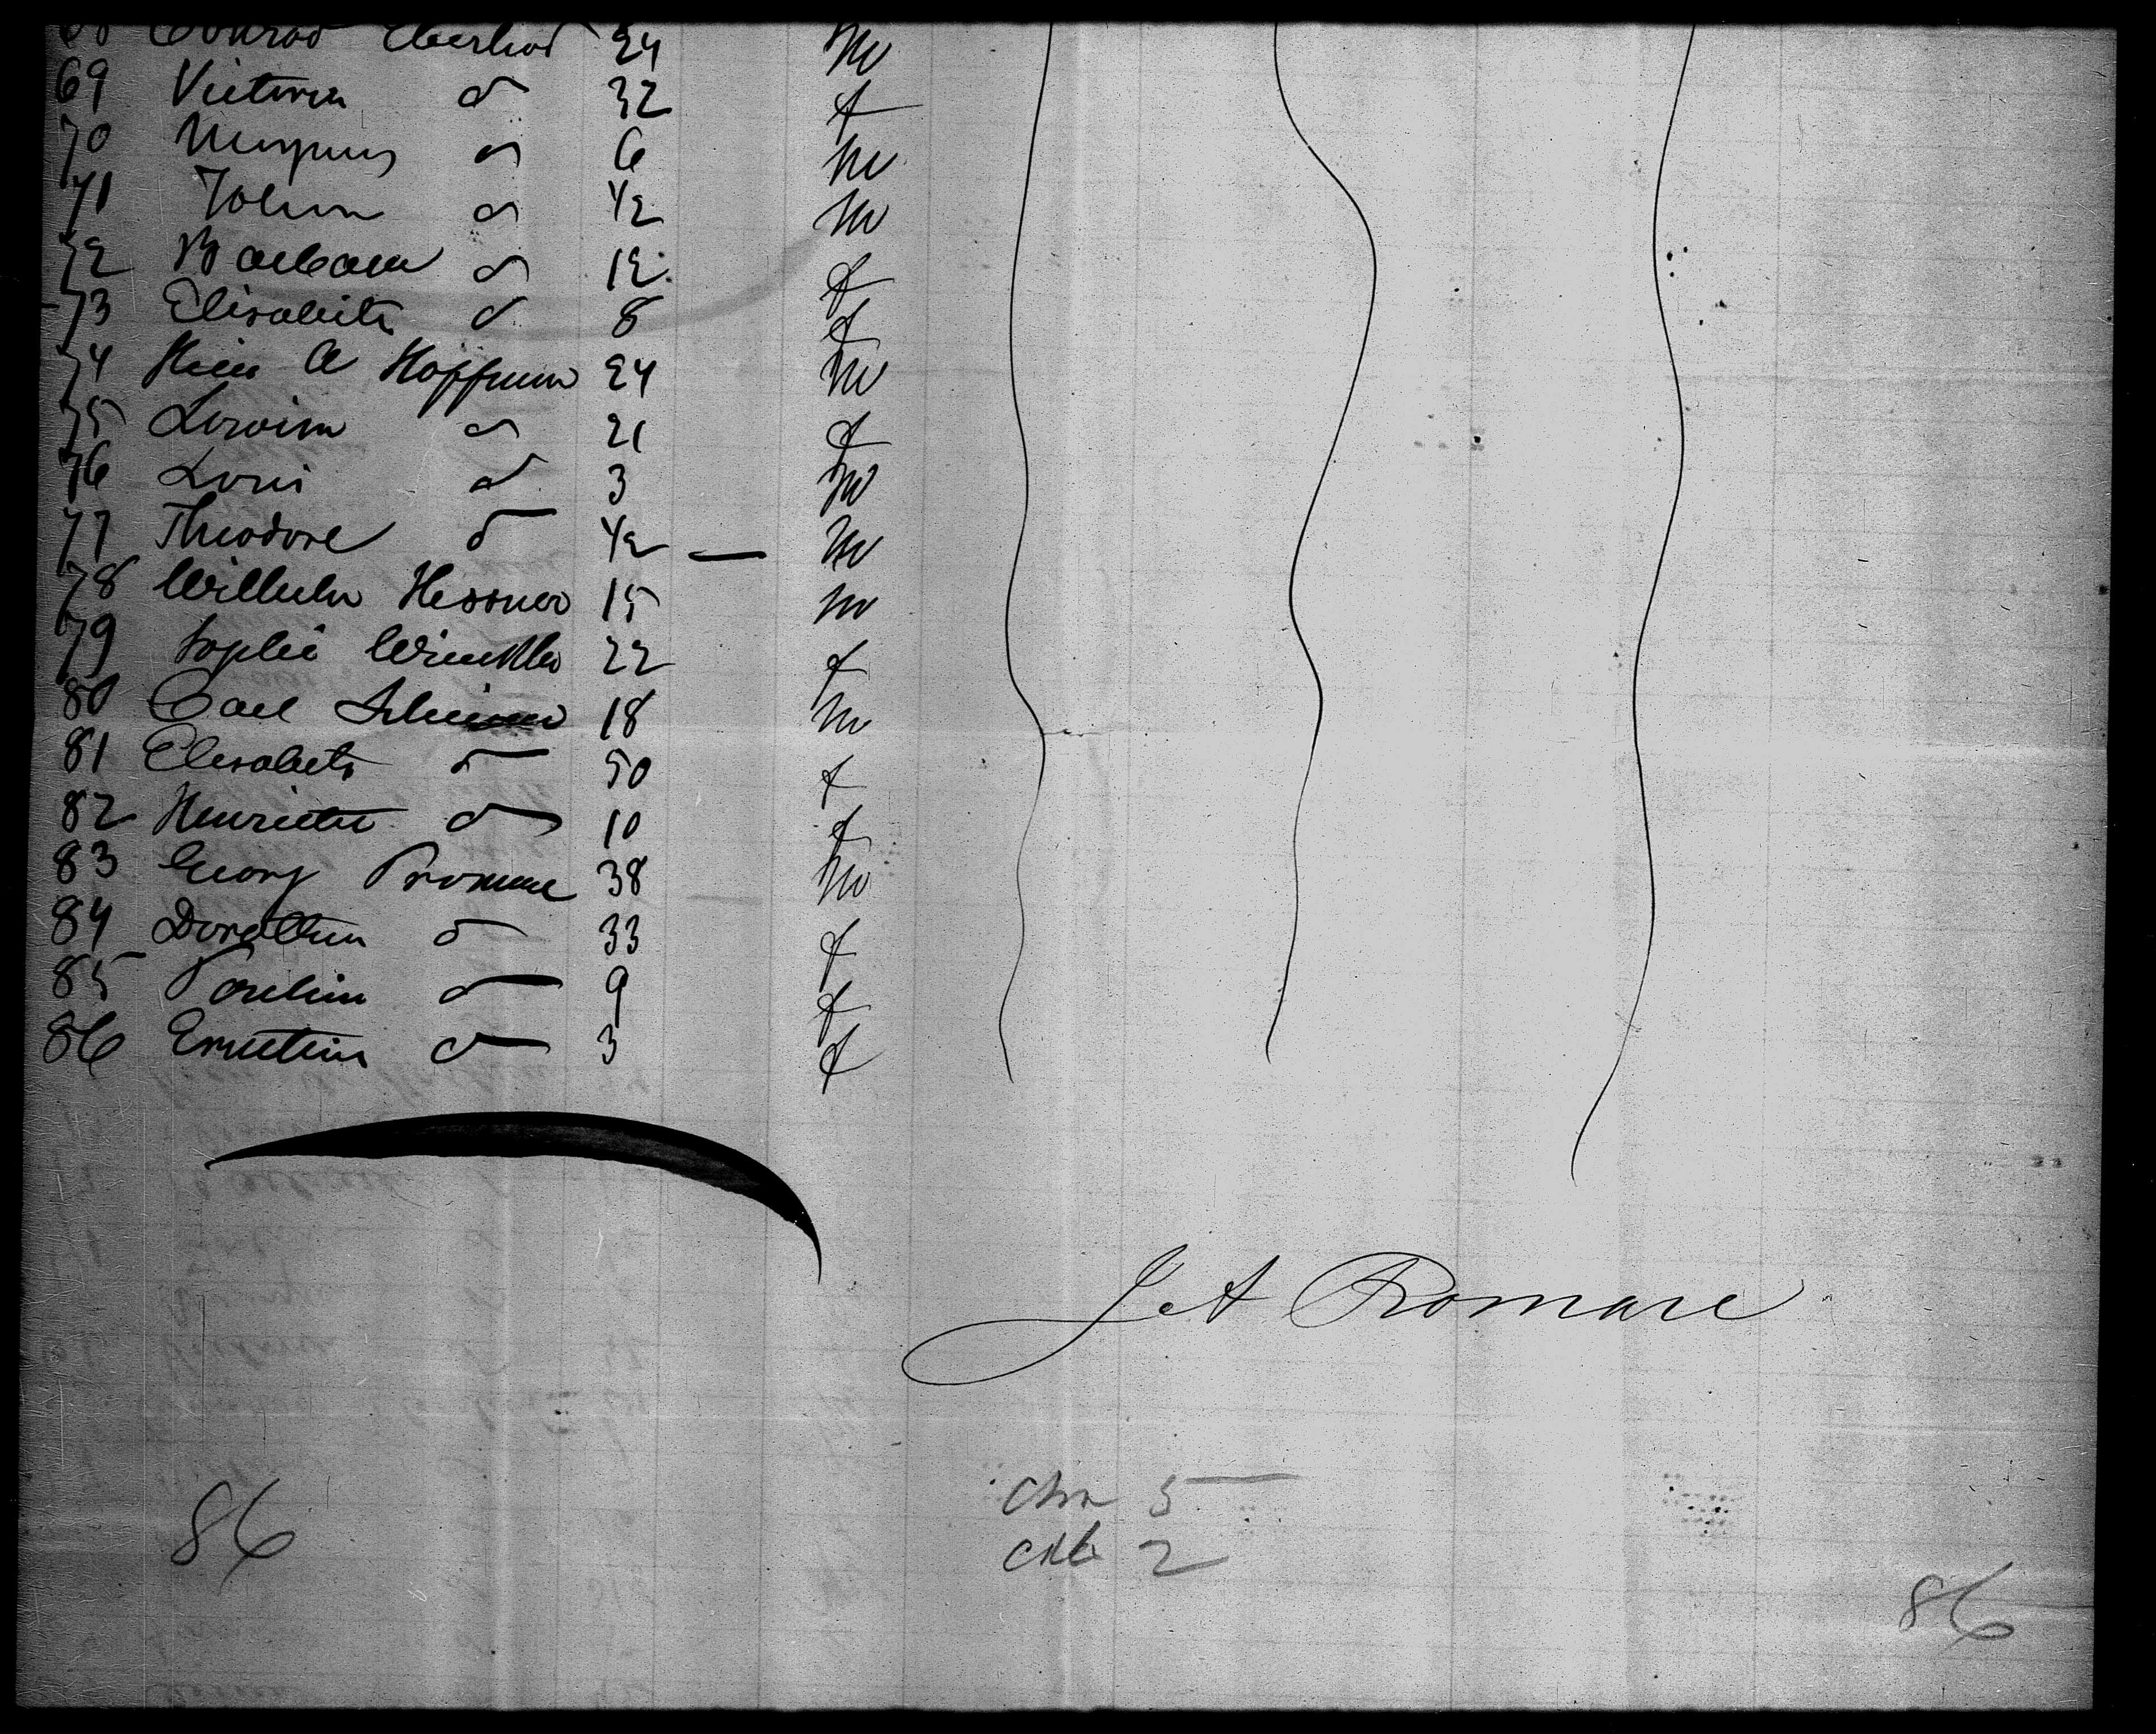 68 Conrad Eberhod 24 m
69 Victoria do 32 f
70 Magnus do 6 m
71 Johan do 1/2 m
72 Barbara do 12 f
73 Elisabeth do 8 f
74 Hein A Hoffman 24 m
75 Lowisa do 21 f
76 Louis do 3 m
77 Theodore do 1/2 — m
78 Wilhelm Hessner 15 m
79 Sophie Winckler 22 f
80 Carl 18 m
81 Elisabeth do 50 f
82 Henriette do 10 f
83 Georg Promme 38 m
84 Dorothea do 33 f
85 Paulina do 9 f
86 Ernstina do 3 f
J A Romare
86
Chn 5
2
86